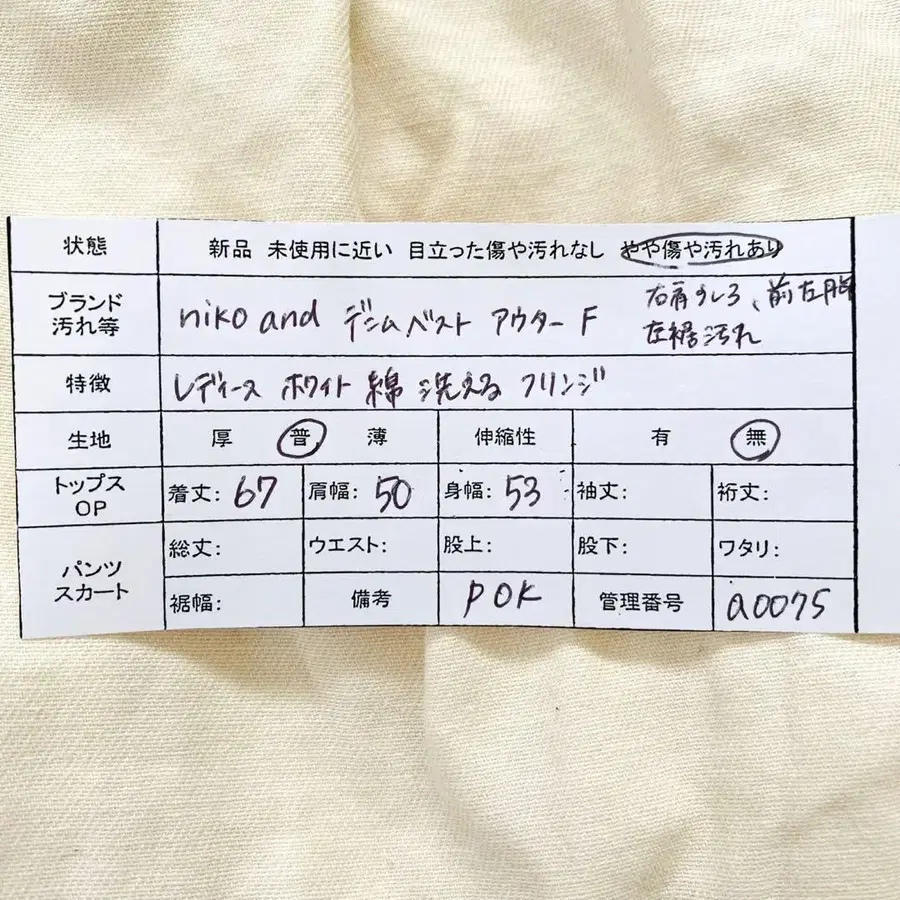 状態 新品 未使用に近い 目立った傷や汚れなし やや傷や汚れあり
ブランド 汚れ等 niko and デニムベスト アウター F 右肩うしろ、前左胸
左裾汚れ
特徴 レディース ホワイト 綿 洗える フリンジ
生地 厚 普 薄 伸縮性 有 無
トップス OP 着丈: 67 肩幅: 50 身幅: 53 袖丈: 裄丈:
パンツ スカート 総丈: ウエスト: 股上: 股下: ワタリ:
裾幅: 備考 POK 管理番号 a0075